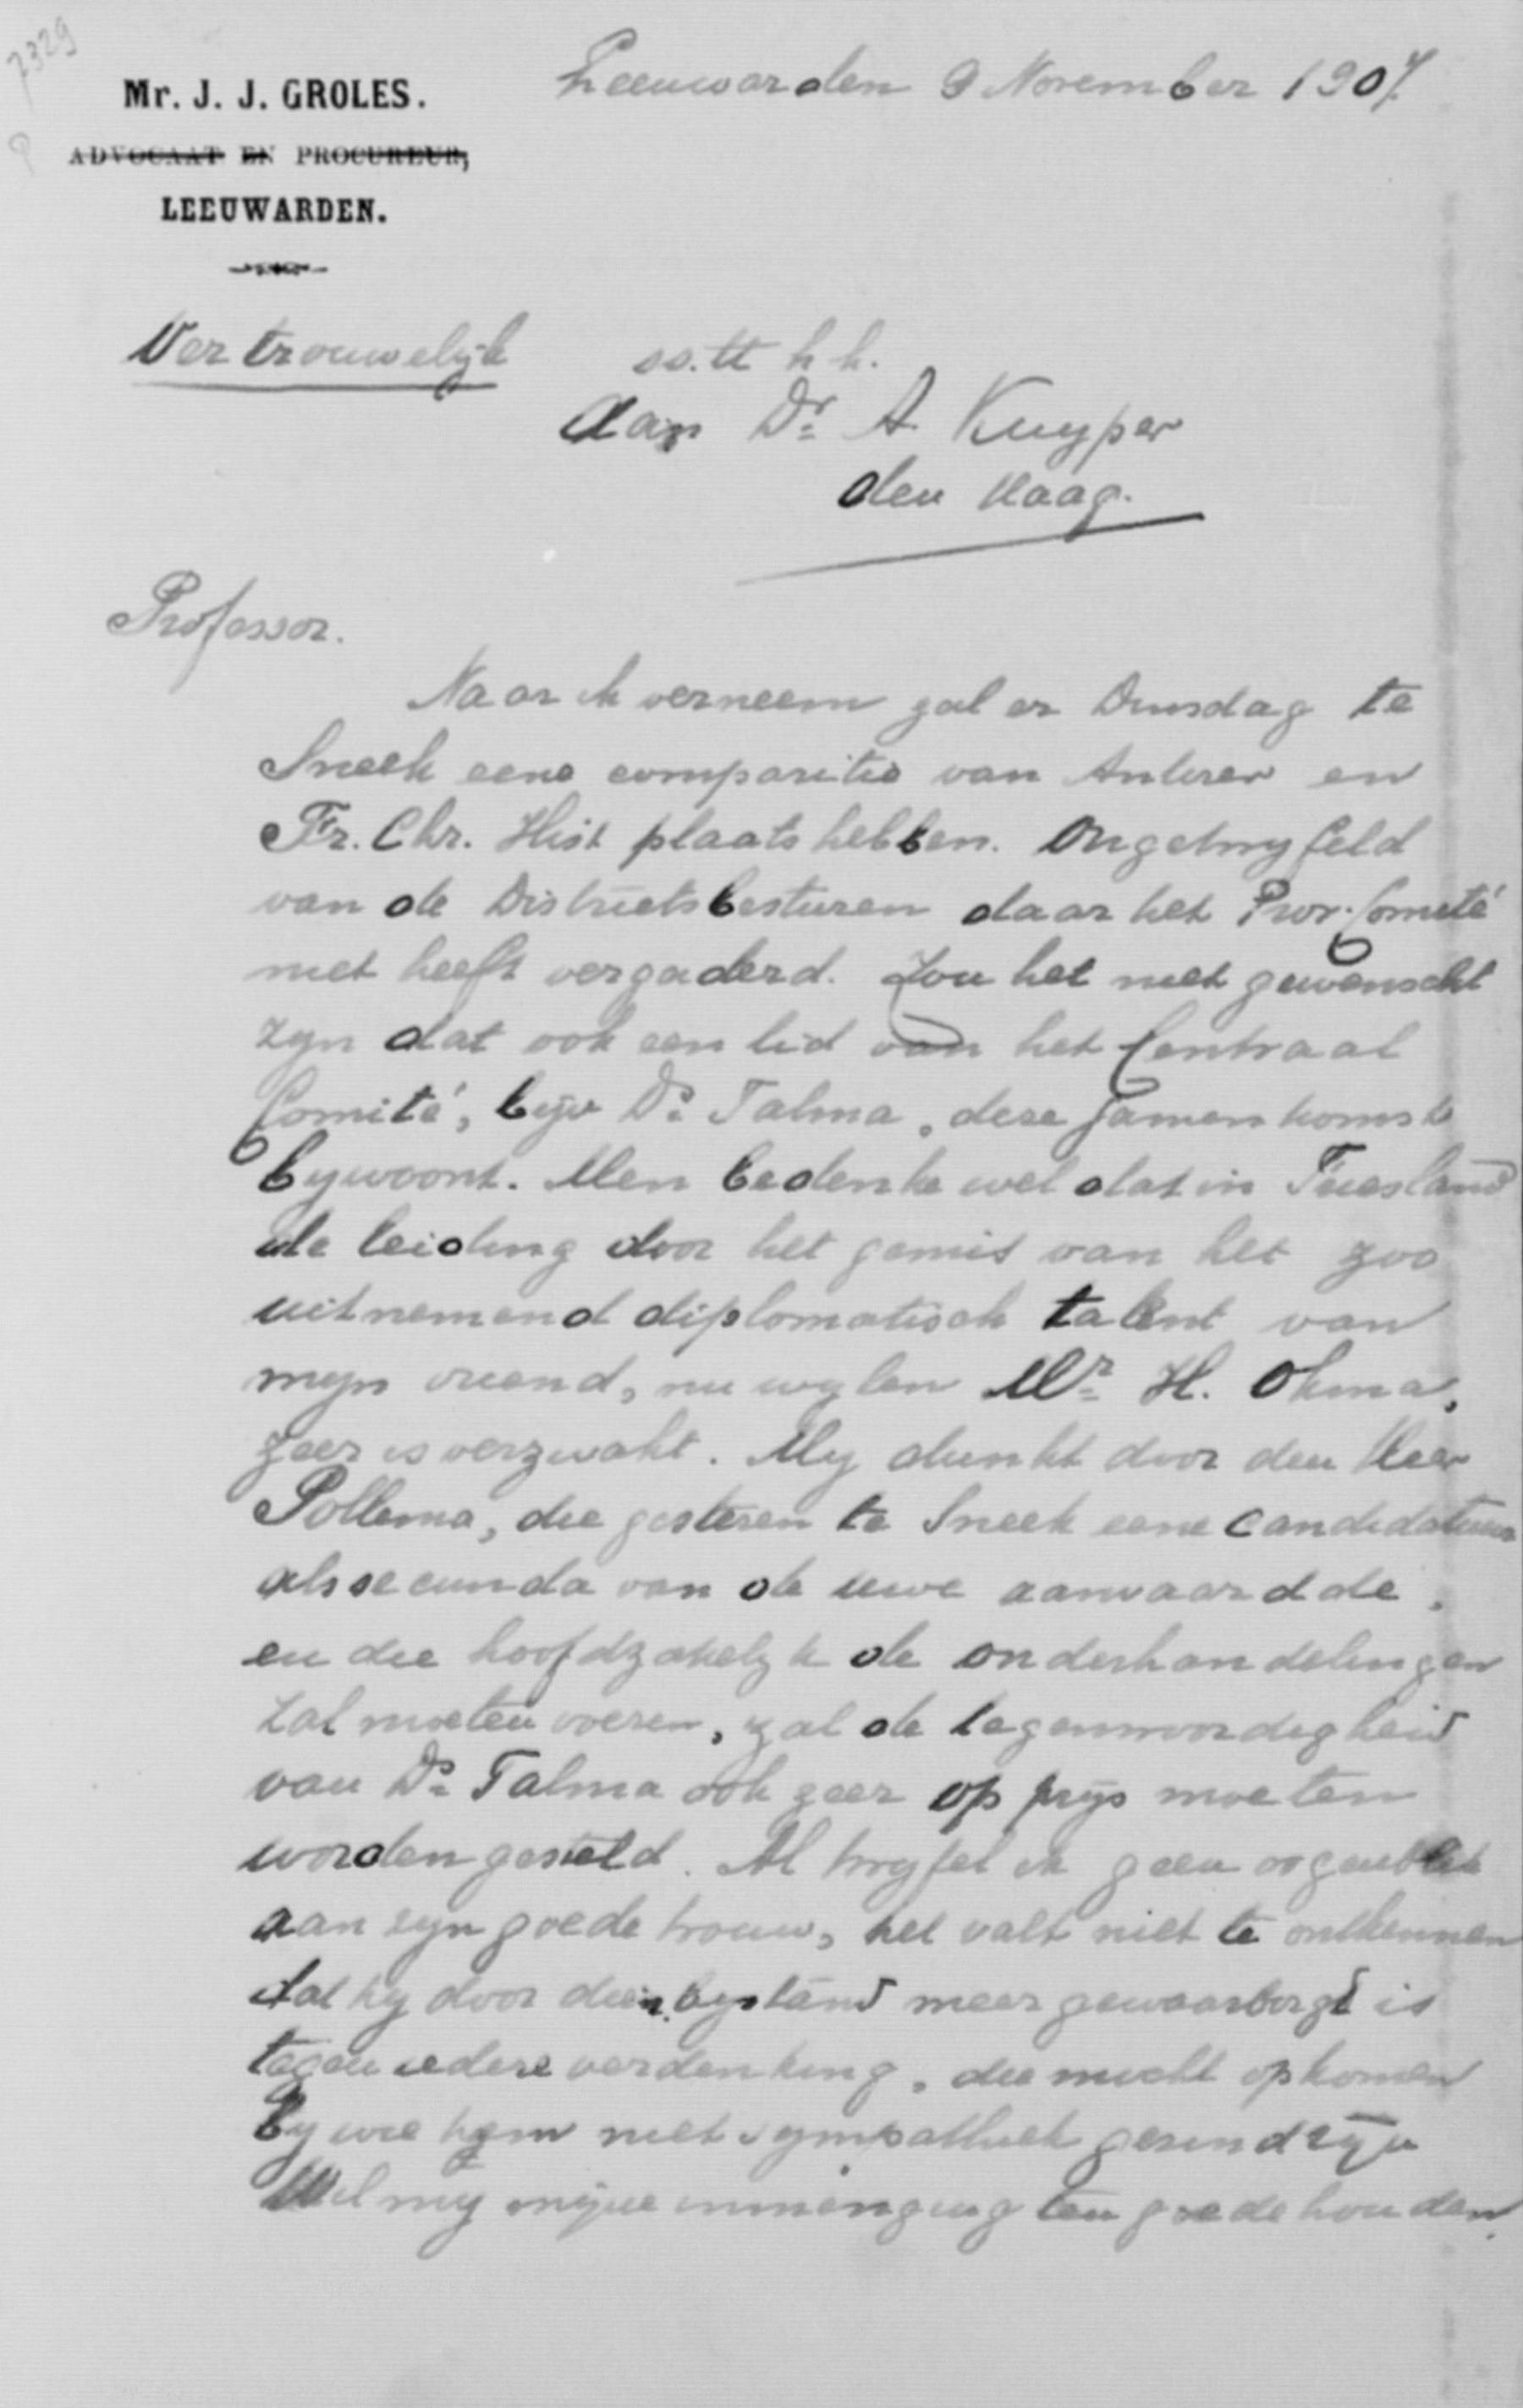 7329
Mr. J. J. GROLES.
ADVOCAAT EN PROCUREUR,
LEEUWARDEN.
Leeuwarden 9 November 1907.
Vertrouwelijk
ss. tt h h.
Aan Dr. A Kuyper
den Haag.
Professor.
Naar ik verneem zal er Dinsdag te
Sneek eene comparitie van Antirev en
Fr. Chr. Hist plaats hebben. Ongetwyfeld
van de Districtsbesturen daar het Prov. Comité
niet heeft vergaderd. Zou het niet gewenscht
zyn dat ook een lid van het Centraal
Comité, bijv Ds Talma, deze samenkomst
bywoont. Men bedenke wel dat in Friesland
de leiding door het gemis van het zoo
uitnemend diplomatisch talent van
myn vriend, nu wylen Mr. H. Okma,
zeer is verzwakt. My dunkt door den Heer
Pollema, die gisteren te Sneek eene candidatuur
als secunda van de uwe aanvaardde,
en die hoofdzakelyk de onderhandelingen
zal moeten voeren, zal de tegenwoordigheid
van Ds Talma ook zeer op prijs moeten
worden gesteld. Al twyfel ik geen oogenblik
aan zyn goede trouw, het valt niet te ontkennen
dat hy door dien bystand meer gewaarborgd is
tegen iedere verdenking, die mocht opkomen
by wie hem niet sympathiek gezind zijn
Wil my mijne inmenging ten goede houden.